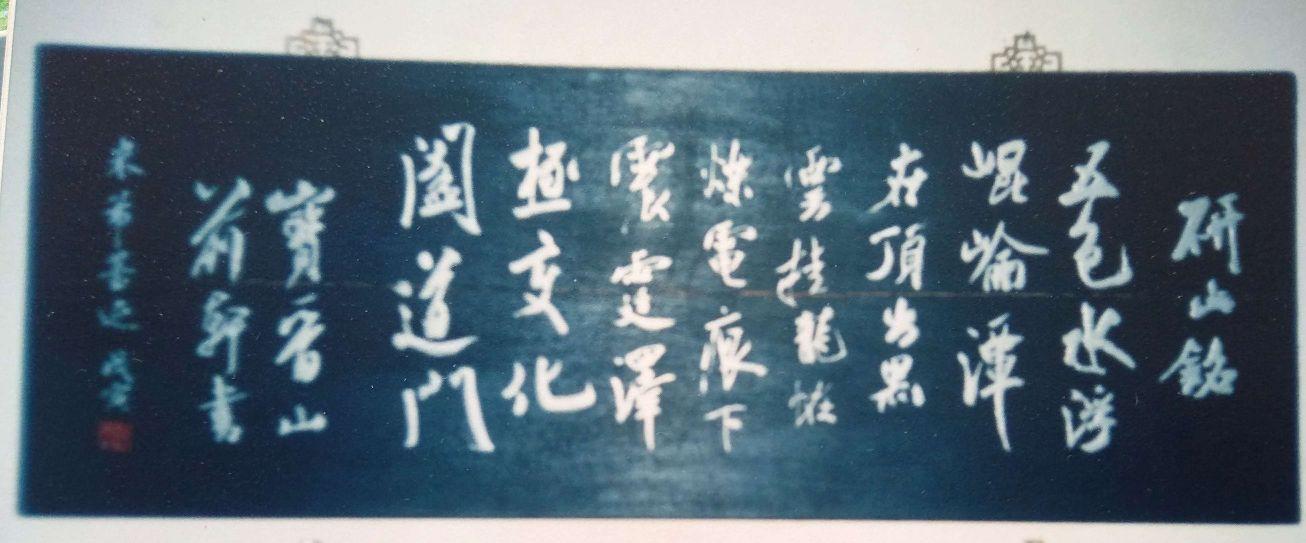 研山銘
五色水浮
崐崘潭
在頂出黑
雲挂龍怪
爍電痕下
震霆澤
極变化
闔道門
寶晉山
前軒書
米芾